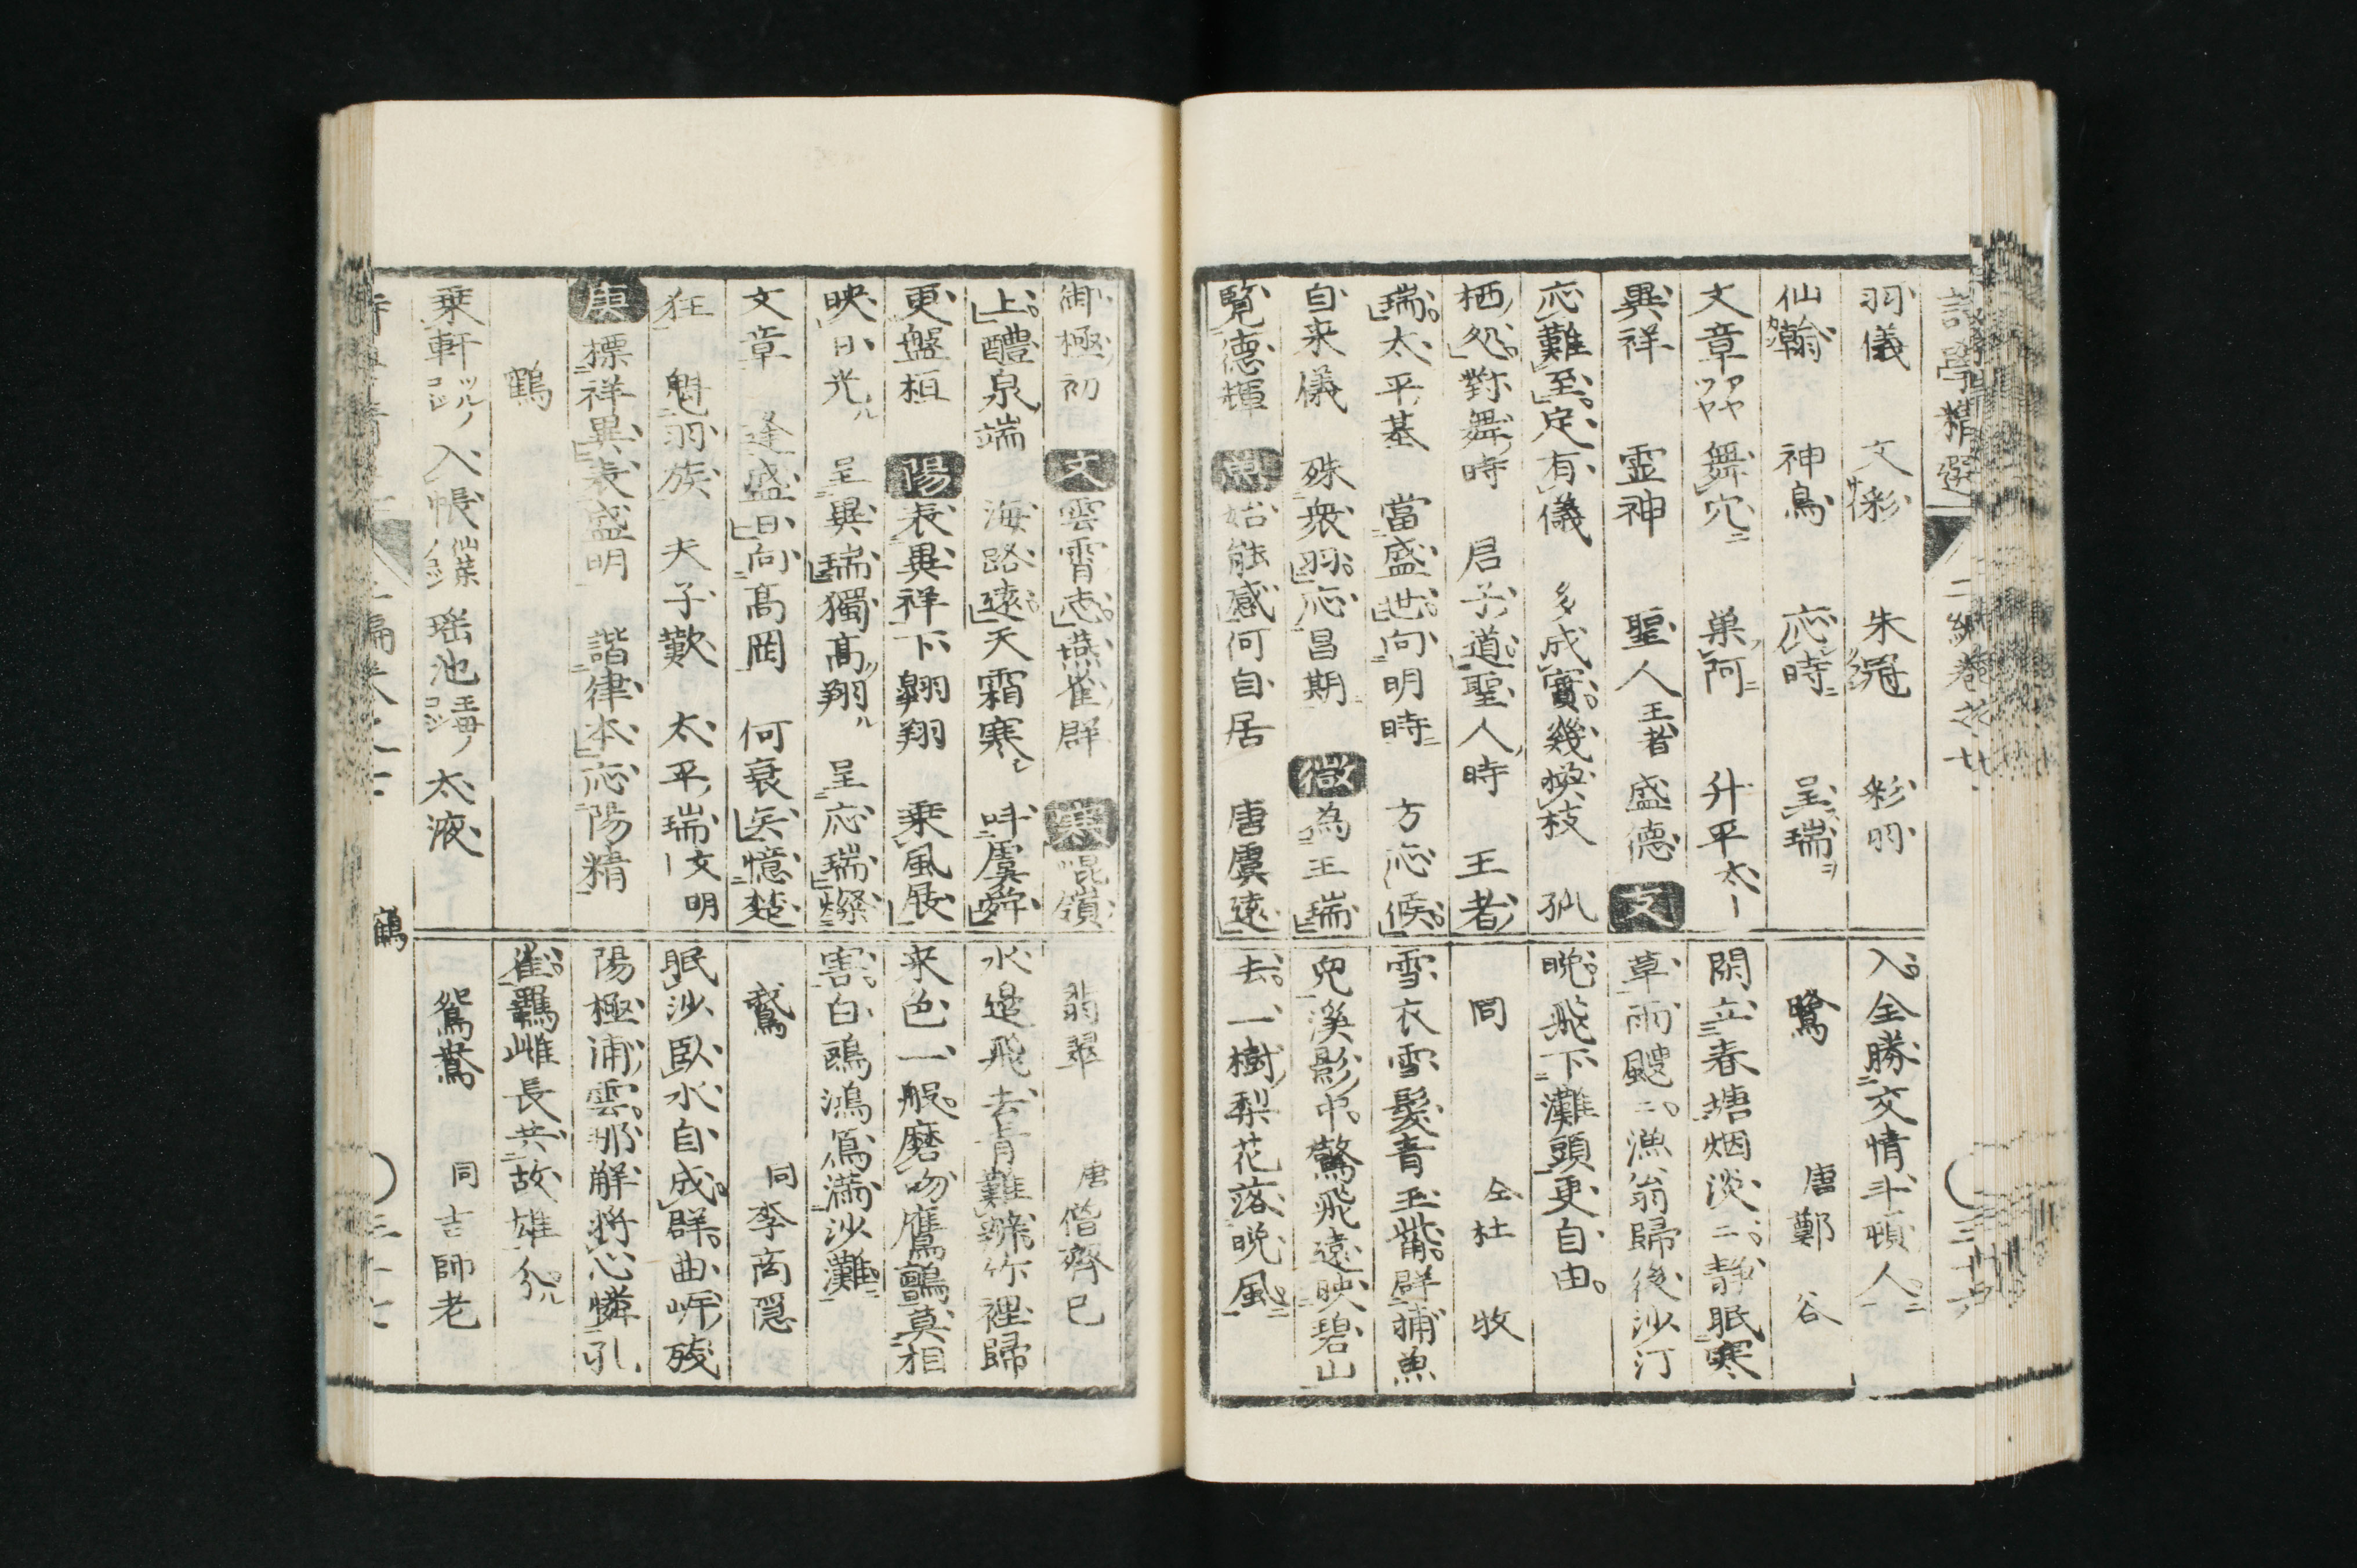 詩學精選 二編巻之廿 三十六
羽儀 文彩 朱冠 彩羽
仙翰 神鳥 応時 呈瑞
文章 舞穴 巣阿 升平
異祥 霊神 聖人 王者 盛徳 文
応難至定有儀 多成實幾換枝 孤
栖処對舞時 君子道聖人時 王者
瑞太平基 當盛世向明時 方応候
自来儀 殊衆羽応昌期 微 為王瑞
覧徳輝 魚 始能感何自居 唐虞遠
入全勝交情斗頓人
鷺 唐鄭谷
閑立春塘烟淡二静眠寒
草雨颼二漁翁歸後沙汀
晩飛下灘頭更自由
同 仝杜牧
雪衣雪髪青玉觜群捕魚
児溪影中驚飛遠映碧山
去一樹梨花落晩風
御極初 文 雲霄志燕雀群 寒 崐嶺
上醴泉端 海路遠天霜寒 呌虞舜
更盤桓 陽 表異祥下翺翔 乗風展
映日光 呈異瑞獨高翔 呈応瑞燦
文章 逢盛日向高岡 何衰矣憶楚
狂 魁羽族 夫子歎 太平瑞 文明
庚 標祥異表盛明 諧律本応陽精
鶴
乗軒 入帳 瑶池 太液
翡翠 唐僧齊已
水邉飛去青難辨竹裡歸
来色一般磨吻鷹鸇莫相
害白鷗鴻鳫満沙灘
鵞 同李商隠
眠沙臥水自成群曲岍残
陽極浦雲那解将心憐孔
雀羈雌長共故雄分
鴛鴦 同吉師老
鶴